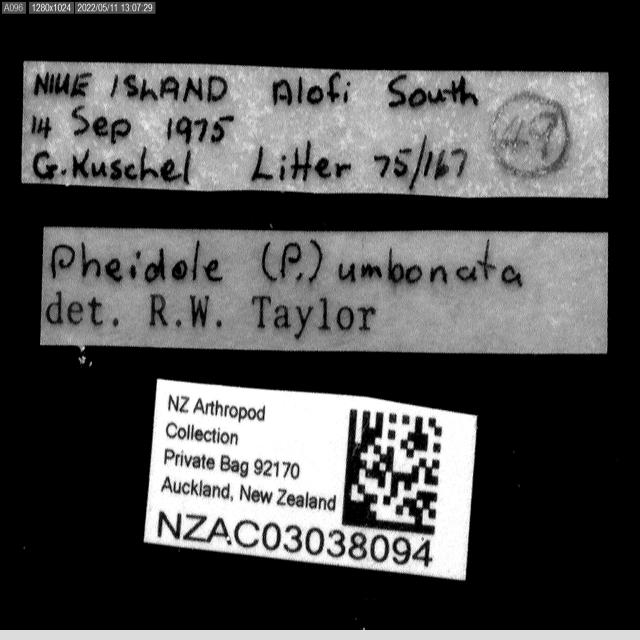 A096 1280x1024 2022/05/11 13:07:29
NIUE ISLAND Alofi South
14 Sep 1975
G. Kuschel Litter 75/167
49
Pheidole (P.) umbonata
det. R.W. Taylor
NZ Arthropod
Collection
Private Bag 92170
Auckland, New Zealand
NZAC03038094